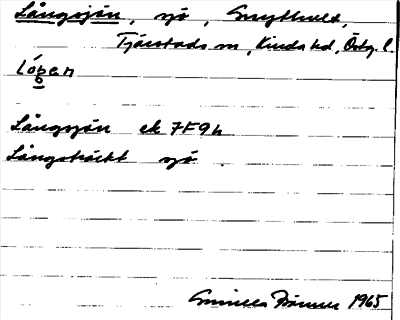 Långsjön, sjö, Smythult,
Tjärstads sn, Kinda hd, Östg. l.
Lópen
Långsjön ek 7F9h
Långsträckt sjö
Gunilla 1965